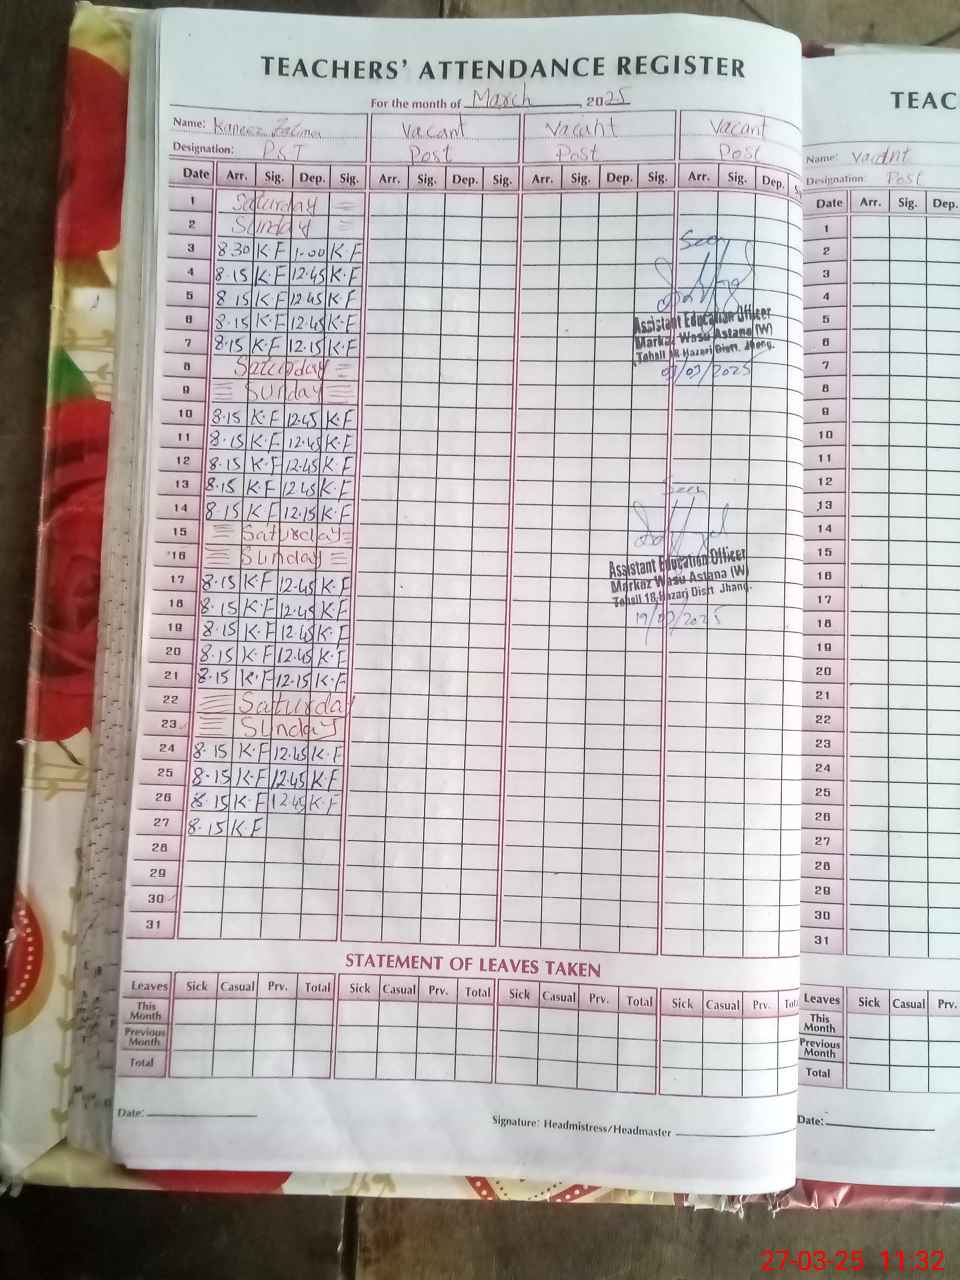 TEACHERS' ATTENDANCE REGISTER
For the month of March, 2025
Name: Kaneez Fatima Vacant Vacant Vacant
Designation: PST Post Post Post
Date Arr. Sig. Dep. Sig. Arr. Sig. Dep. Sig. Arr. Sig. Dep. Sig. Arr. Sig. Dep.
1 Saturday
2 Sunday
3 8.30 K.F 1.00 K.F
4 8.15 K.F 12.45 K.F
5 8.15 K.F 12.45 K.F
6 8.15 K.F 12.45 K.F
7 8.15 K.F 12.15 K.F
8 Saturday
9 Sunday
10 8.15 K.F 12.45 K.F
11 8.15 K.F 12.45 K.F
12 8.15 K.F 12.45 K.F
13 8.15 K.F 12.45 K.F
14 8.15 K.F 12.15 K.F
15 Saturday
16 Sunday
17 8.15 K.F 12.45 K.F
18 8.15 K.F 12.45 K.F
19 8.15 K.F 12.45 K.F
20 8.15 K.F 12.45 K.F
21 8.15 K.F 12.15 K.F
22 Saturday
23 Sunday
24 8.15 K.F 12.45 K.F
25 8.15 K.F 12.45 K.F
26 8.15 K.F 12.45 K.F
27 8.15 K.F
28
29
30
31
Seen
Assistant Education Officer
Markaz Wasu Astana (W)
Tehsil 18 Hazari Distt. Jhang.
/03/2025
Seen
Assistant Education Officer
Markaz Wasu Astana (W)
Tehsil 18 Hazari Distt. Jhang.
19/03/2025
STATEMENT OF LEAVES TAKEN
Leaves Sick Casual Prv. Total Sick Casual Prv. Total Sick Casual Prv. Total Sick Casual Prv.
This
Month
Previous
Month
Total
Date:
Signature: Headmistress/Headmaster
TEAC
Name: Vacant
Designation: Post
Date Arr. Sig. Dep.
1
2
3
4
5
6
7
8
9
10
11
12
13
14
15
16
17
18
19
20
21
22
23
24
25
26
27
28
29
30
31
Leaves Sick Casual Prv.
This
Month
Previous
Month
Total
Date:
27-03-25 11:32